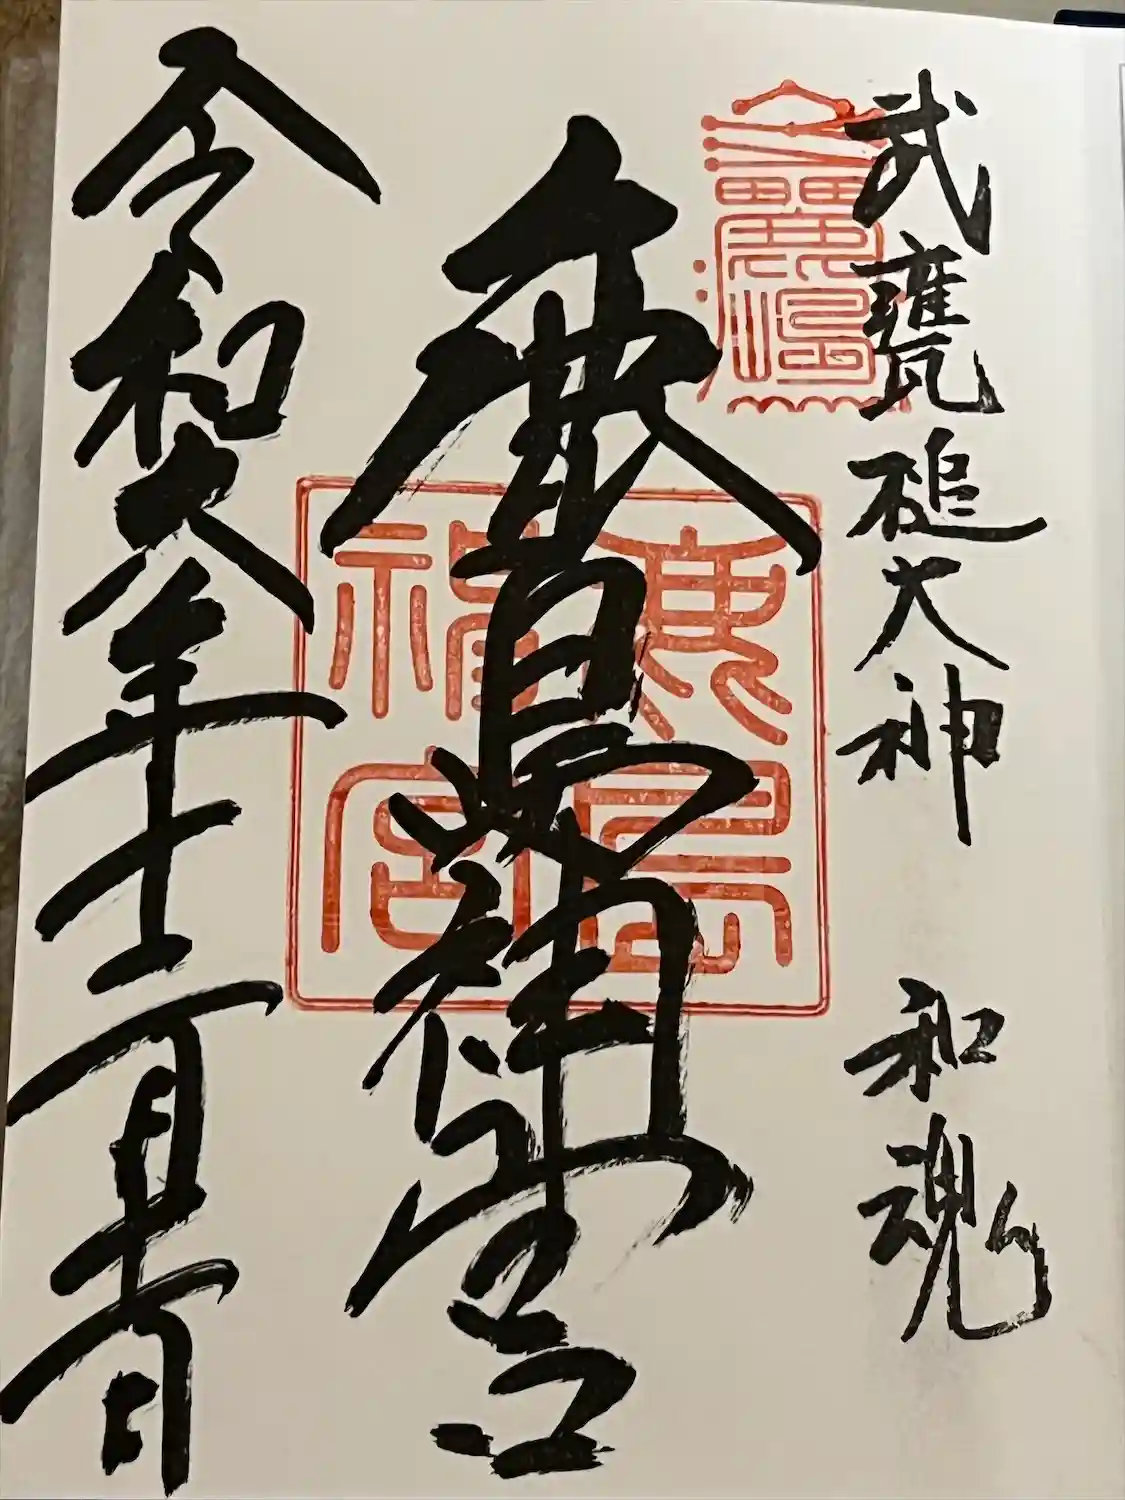 武甕槌大神 和魂
鹿嶋
鹿島神宮
鹿島
神宮
令和六年十